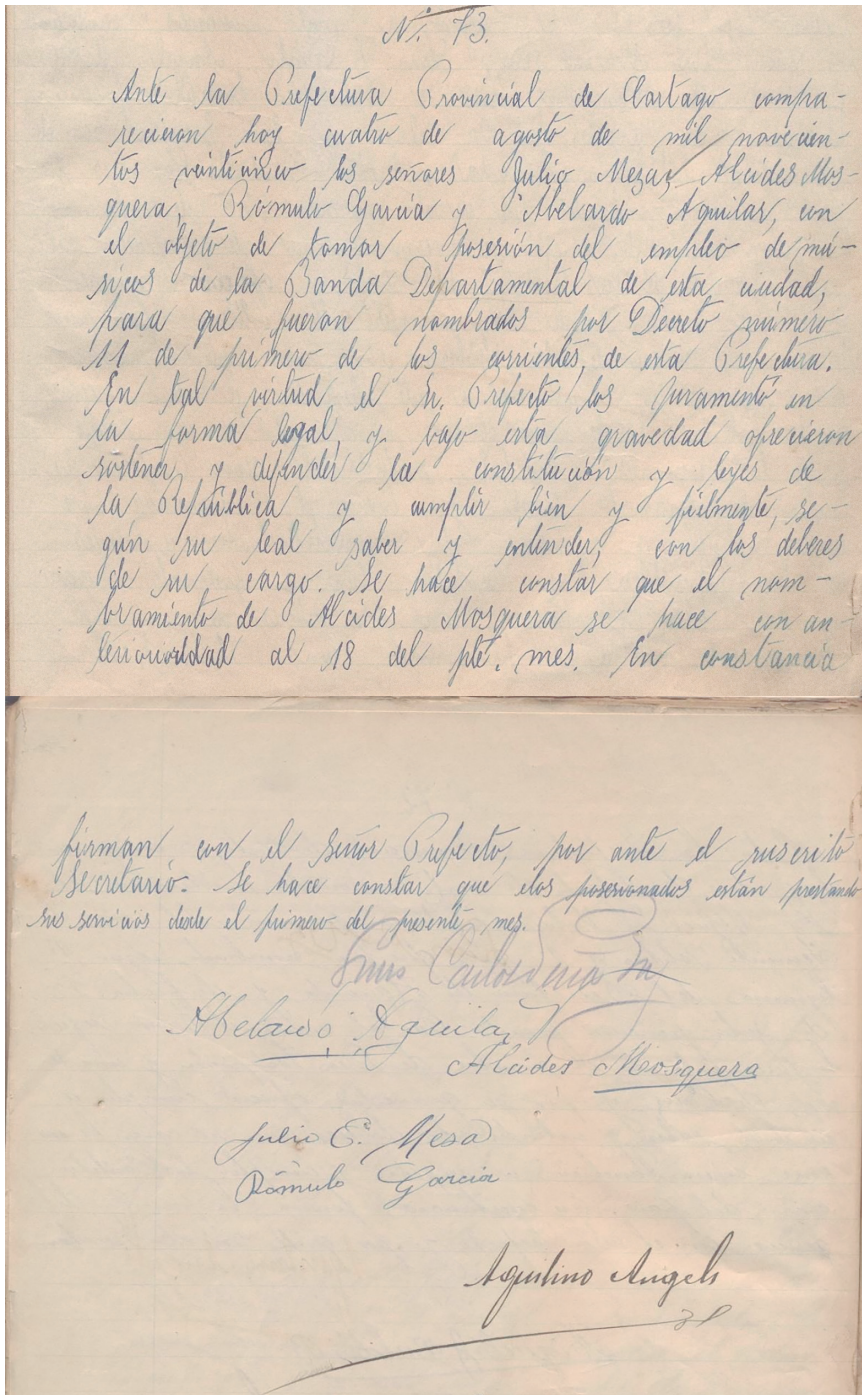 N°. 73.
Ante la Prefectura Provincial de Cartago compa-
recieron hoy cuatro de agosto de mil novecien-
tos veinticinco los señores Julio Meza, Alcídes Mos-
quera, Rómulo García y Abelardo Aguilar, con
el objeto de tomar posesión del empleo de mú-
sicos de la Banda Departamental de esta ciudad,
para que fueron nombrados por Decreto número
11 de primero de los corrientes, de esta Prefectura.
En tal virtud el Sr. Prefecto los juramentó en
la forma legal, y bajo esta gravedad ofrecieron
sostener y defender la constitución y leyes de
la República y cumplir bien y fielmente, se-
gún su leal saber y entender, con los deberes
de su cargo. Se hace constar que el nom-
bramiento de Alcides Mosquera se hace con an-
terioridad al 18 del pte. mes. En constancia
firman con el señor Prefecto, por ante el suscrito
Secretario. Se hace constar que los posesionados están prestando
sus servicios desde el primero del presente mes.
Luis Carlos Peña
Abelardo Aguilar
Alcídes Mosquera
Julio E. Mesa
Rómulo Garcia
Aquilino Angel